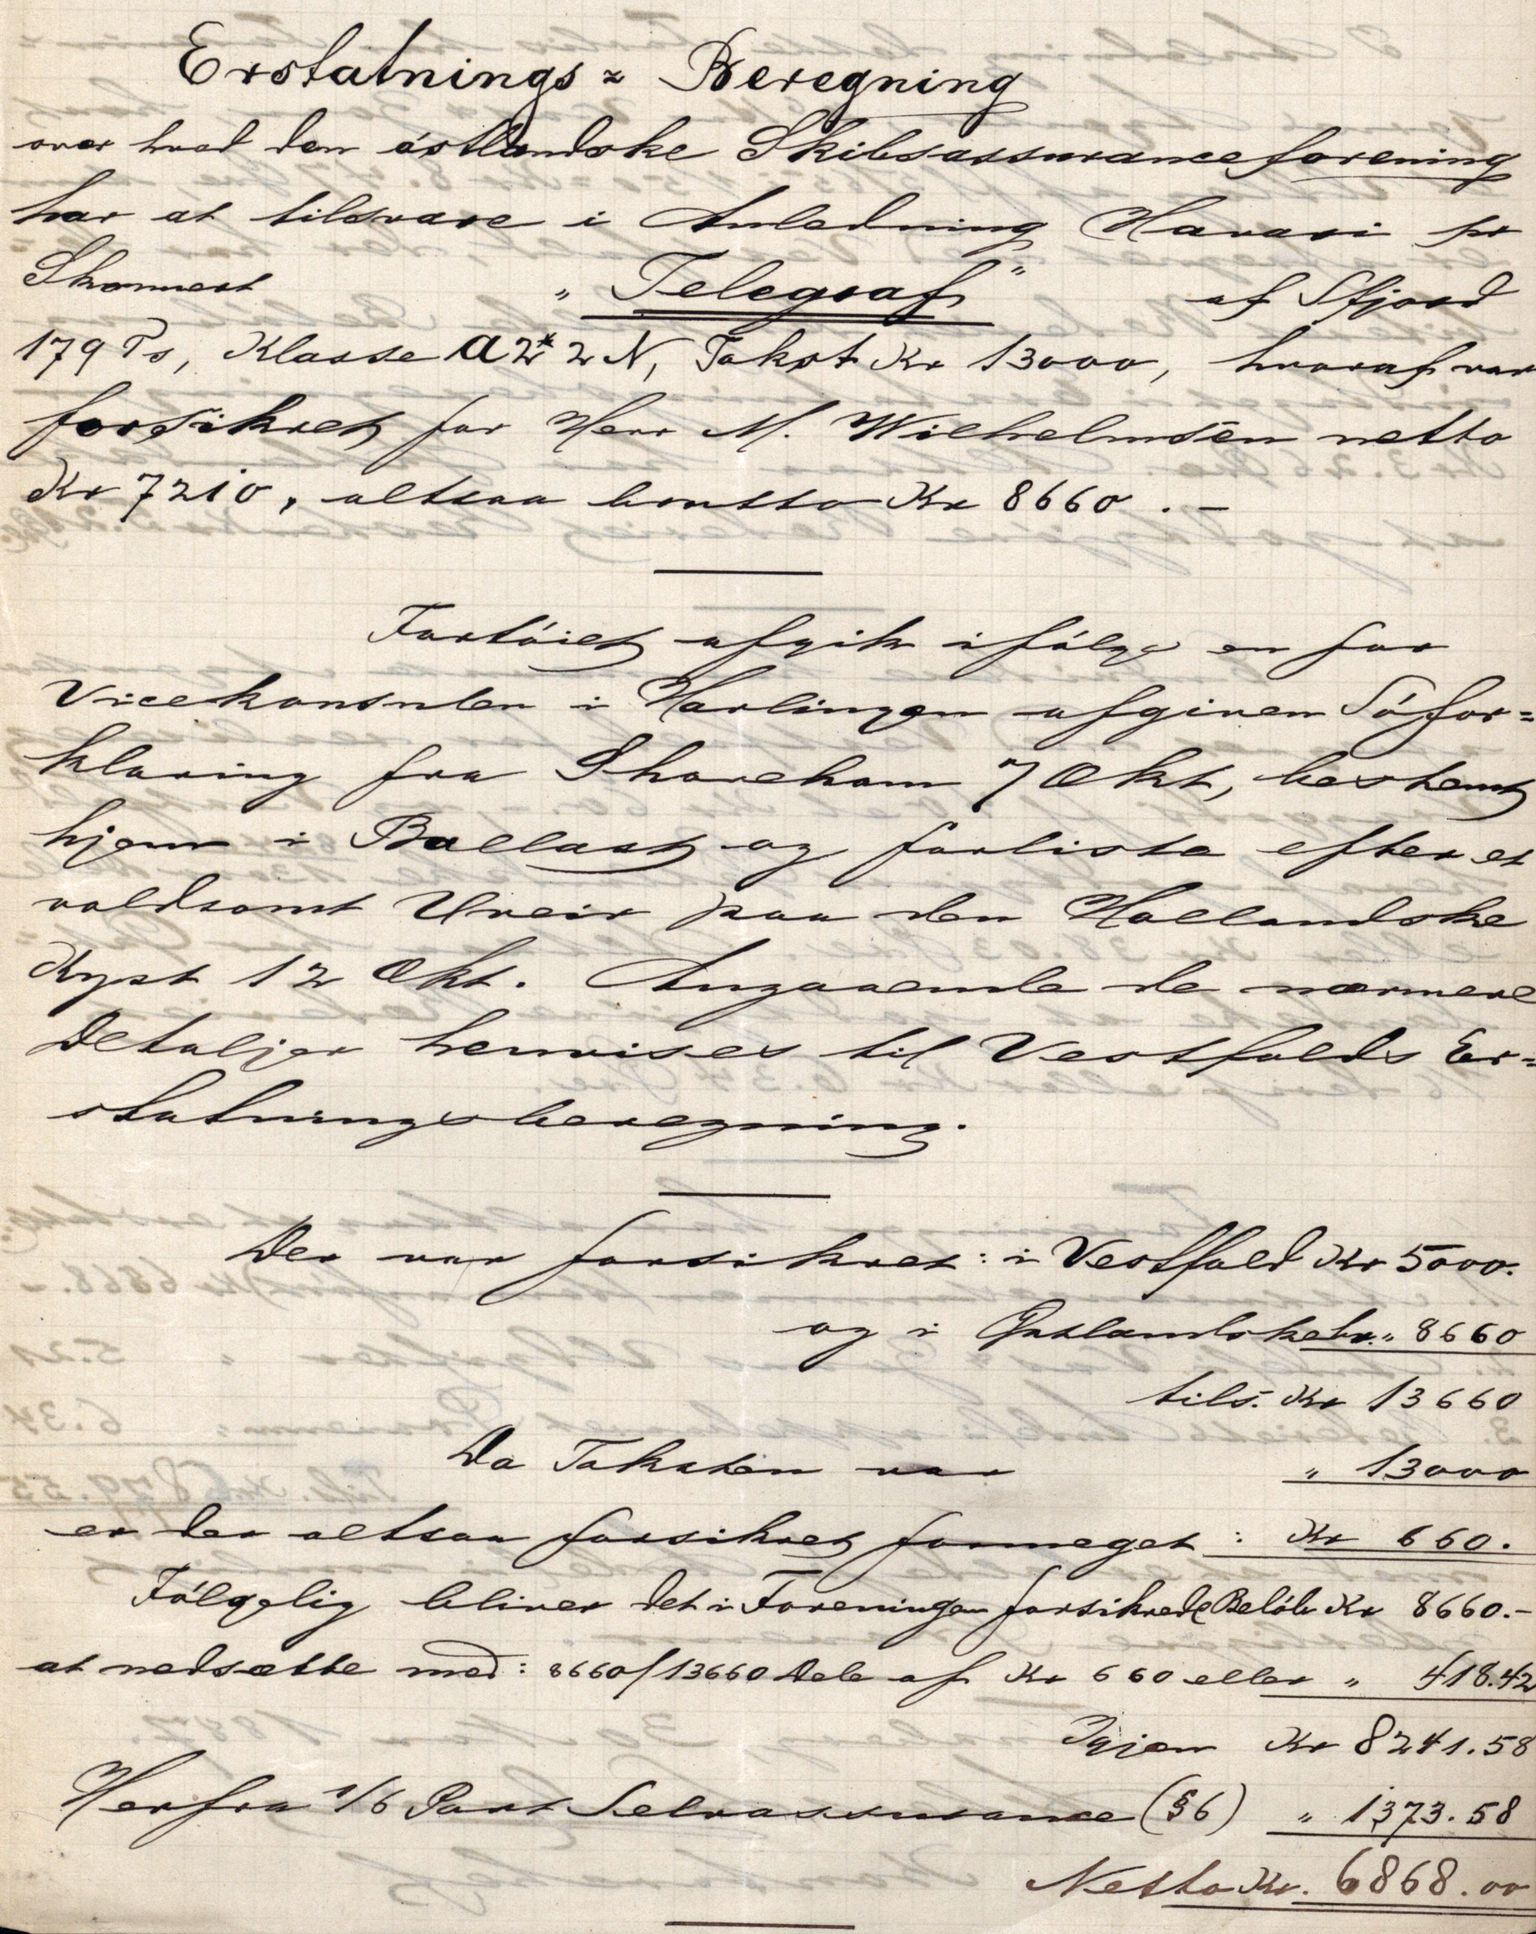 Erstatnings= Beregning
over hvad den østlandske Skibsassuranceforening
har at tilsvare i Anledning Havari pr
Skonnert "Telegraf" af Sfjord
179 Ts, Klasse A2* 2 N, Takst Kr 13000, hvoraf var
forsikret for Herr M. Wilhelmsen netto
Kr 7210, altsaa brutto Kr 8660.-
Fartøiet afgik ifølge en for
Vicekonsulen i Harlingen afgiven Søfor=
klaring fra Shoreham 7 Okt, bestemt
hjem i Ballast og forliste efter et
voldsomt Uveir paa den Hollandske
Kyst 12 Okt. Angaaende de nærmere
Detaljer henvises til Vestfolds Er=
statningsberegning.
Der var forsikret: i Vestfold Kr 5000.
og i Østlandske br. " 8660
tils. Kr 13660
Da Taksten var " 13000
er der altsaa forsikret formeget: Kr 660.
Følgelig bliver det i Foreningen forsikrede Beløb Kr 8660.-
at nedsætte med: 8660/13660 Dele af Kr 660 eller " 418.42
Igjen Kr 8241.58
Herfra 1/6 Part Selvassurance (§6) " 1373.58
Netto Kr. 6868.00